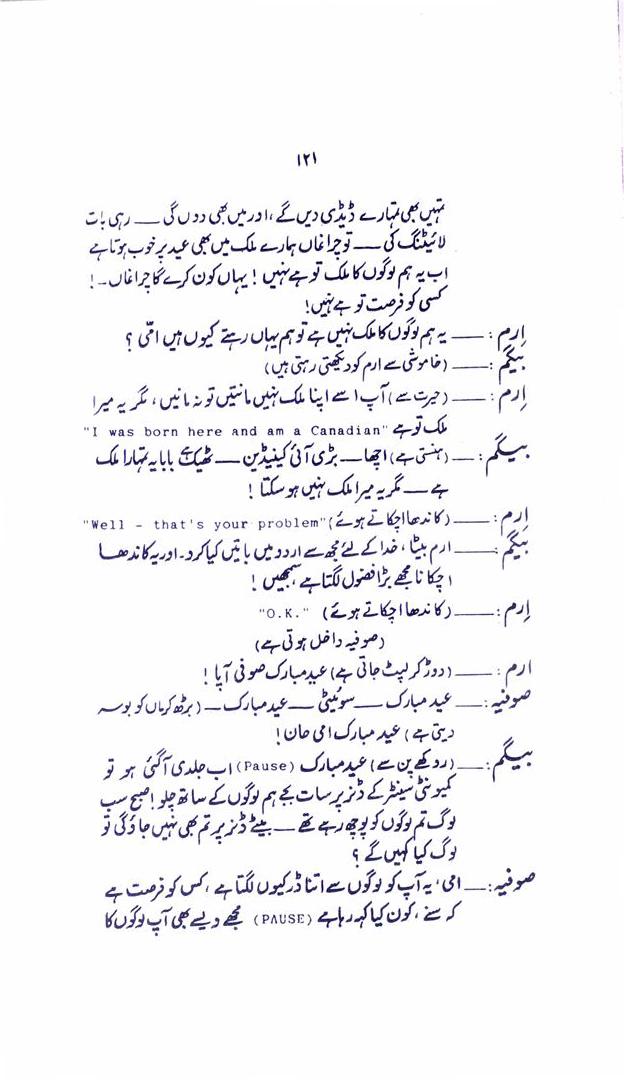 ۱۲۱
تمہیں بھی تمہارے ڈیڈی دیں گے، اور میں بھی دوں گی — رہی بات
لائیٹنگ کی — تو چراغاں ہمارے ملک میں بھی عید پر خوب ہوتا ہے
اب یہ ہم لوگوں کا ملک تو ہے نہیں! یہاں کون کرے گا چراغاں۔!
کسی کو فرصت تو ہے نہیں!
اِرم :— یہ ہم لوگوں کا ملک نہیں ہے تو ہم یہاں رہتے کیوں ہیں امّی ؟
بیگم :— (خاموشی سے ارم کو دیکھتی رہتی ہیں)
اِرم :— (حیرت سے) آپ اسے اپنا ملک نہیں مانتیں تو نہ مانیں، مگر یہ میرا
ملک تو ہے "I was born here and am a Canadian"
بیگم :— (ہنستی ہے) اچھا — بڑی آئی کینیڈین — ٹھیک ہے بابا یہ تمہارا ملک
ہے — مگر یہ میرا ملک نہیں ہو سکتا !
اِرم :— (کاندھا اچکاتے ہوئے) "Well - that's your problem"
بیگم :— ارم بیٹا، خدا کے لئے مجھ سے اردو میں باتیں کیا کرو۔ اور یہ کاندھا
اچکانا مجھے بڑا فضول لگتا ہے، سمجھیں !
اِرم :— (کاندھا اچکاتے ہوئے) "O.K."
(صوفیہ داخل ہوتی ہے)
ارم :— (دوڑ کر لپٹ جاتی ہے) عید مبارک صوفی آپا !
صوفیہ :— عید مبارک — سوئیٹی — عید مبارک — (بڑھ کر ماں کو بوسہ
دیتی ہے) عید مبارک امی جان !
بیگم :— (روکھے پن سے) عید مبارک (Pause) اب جلدی آ گئی ہو تو
کمیونٹی سینٹر کے ڈنر پر سات بجے ہم لوگوں کے ساتھ چلو! صبح سب
لوگ تم لوگوں کو پوچھ رہے تھے — بیٹے ڈنر پر تم بھی نہیں جاؤگی تو
لوگ کیا کہیں گے ؟
صوفیہ :— امی، یہ آپ کو لوگوں سے اتنا ڈر کیوں لگتا ہے، کس کو فرصت ہے
کہ سنے، کون کیا کہہ رہا ہے (PAUSE) مجھے ویسے بھی آپ لوگوں کا